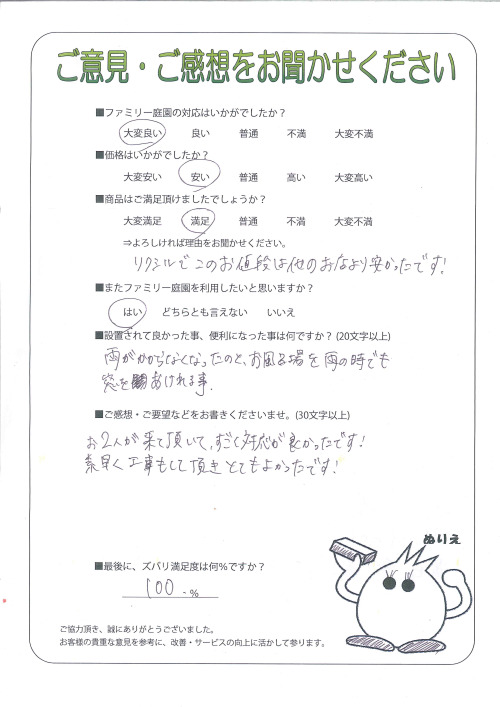 ご意見・ご感想をお聞かせください
■ファミリー庭園の対応はいかがでしたか？
大変良い 良い 普通 不満 大変不満
■価格はいかがでしたか？
大変安い 安い 普通 高い 大変高い
■商品はご満足頂けましたでしょうか？
大変満足 満足 普通 不満 大変不満
⇒よろしければ理由をお聞かせください。
リクシルでこのお値段は他のお店より安かったです!
■またファミリー庭園を利用したいと思いますか？
はい どちらとも言えない いいえ
■設置されて良かった事、便利になった事は何ですか？(20文字以上)
雨がかからなくなったのと、お風呂場を雨の時でも
窓をあけれる事.
■ご感想・ご要望などをお書きくださいませ。(30文字以上)
お2人が来て頂いて、すごく対応が良かったです!
素早く工事もして頂きとてもよかったです!
ぬりえ
■最後に、ズバリ満足度は何%ですか？
100 %
ご協力頂き、誠にありがとうございました。
お客様の貴重な意見を参考に、改善・サービスの向上に活かして参ります。